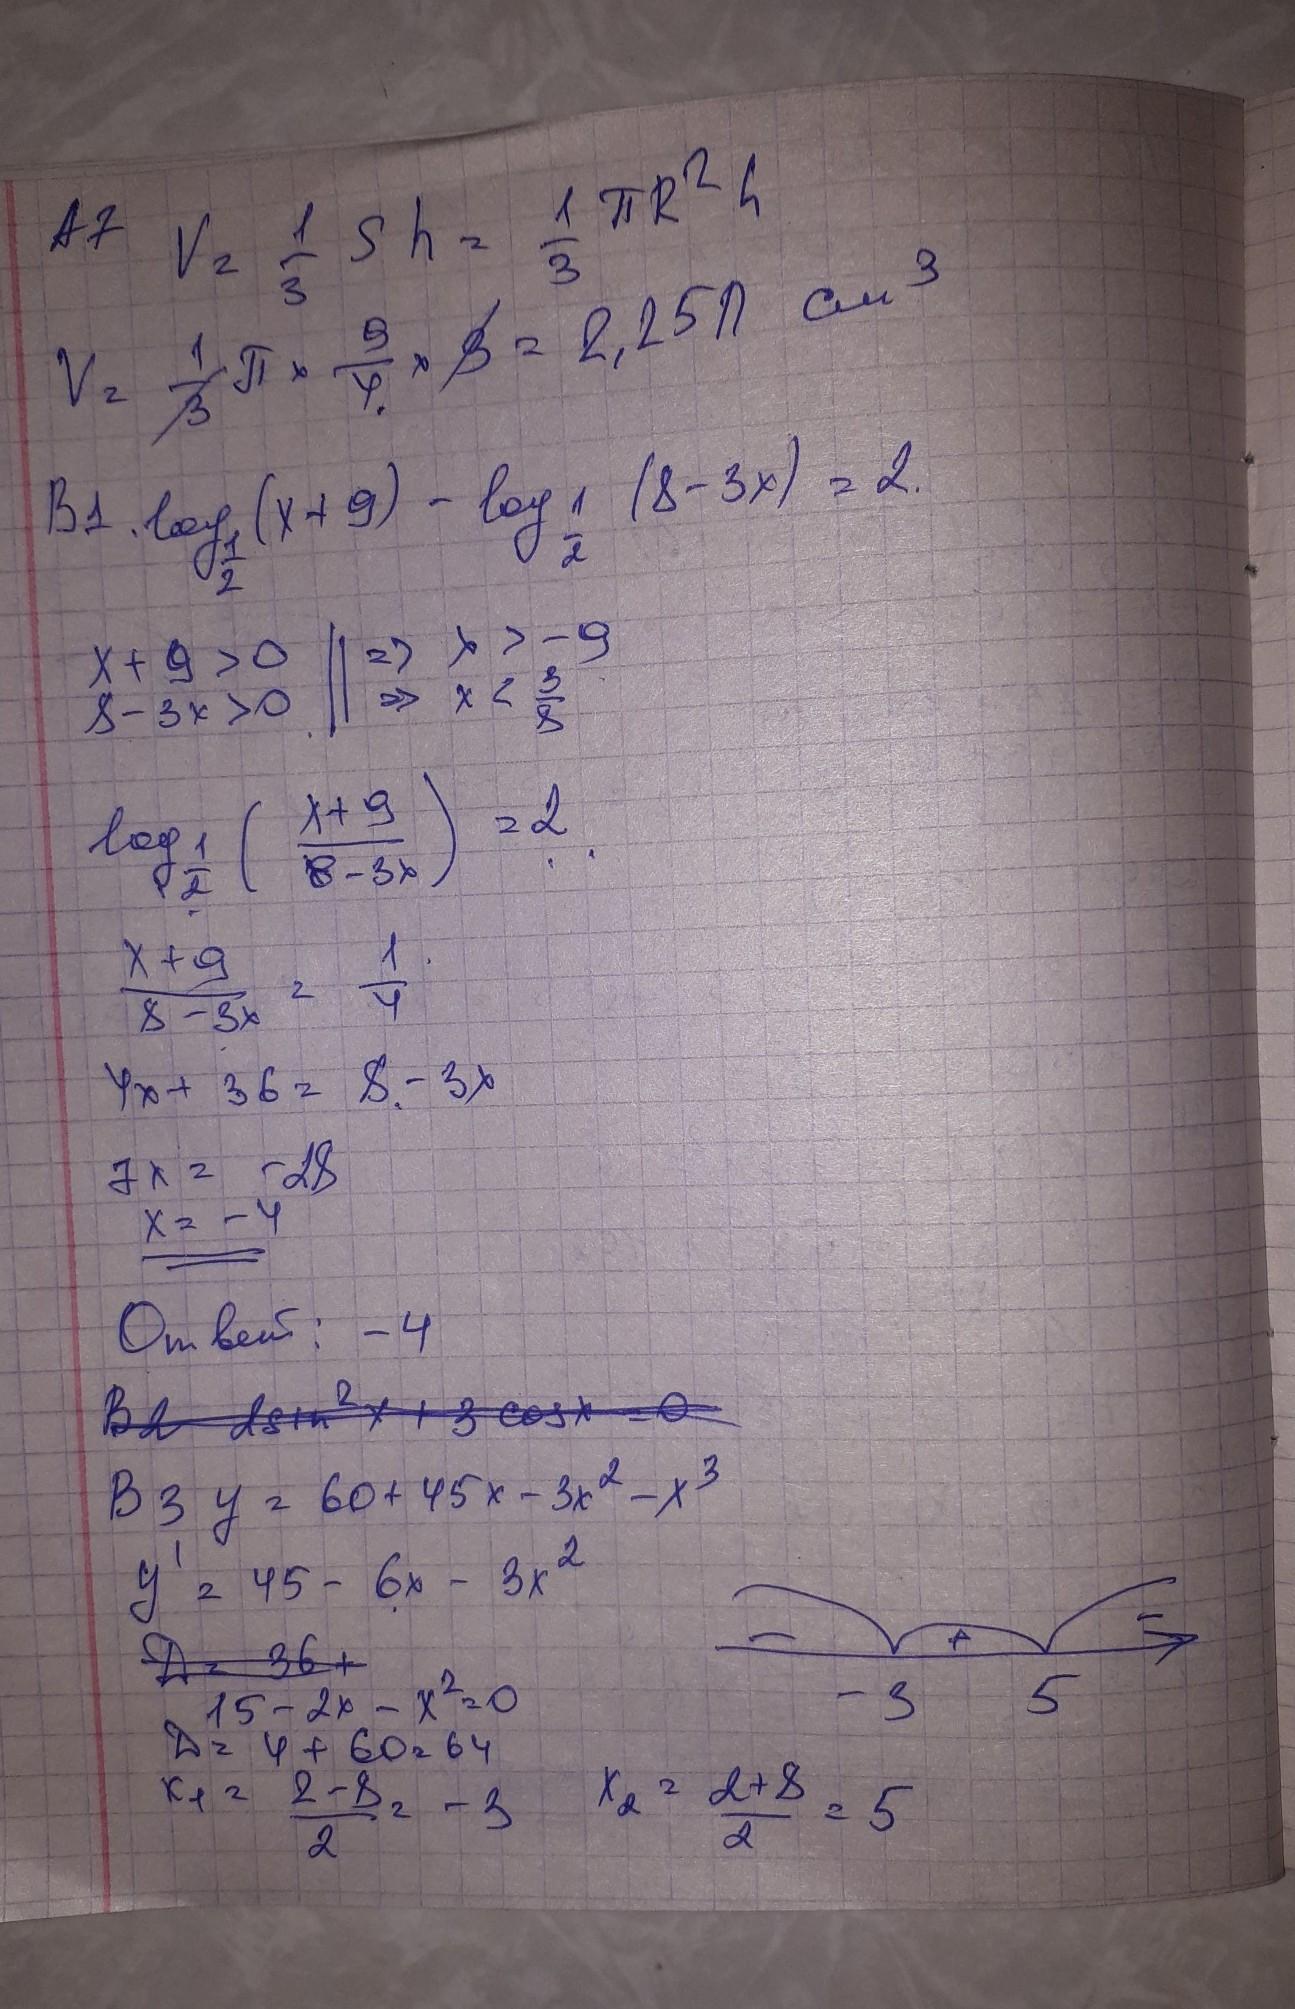 A7 V = 1/3 S h = 1/3 πR² h
V = 1/3 π × 9/4 × 3 = 2,25π см³
B1. log_{1/2}(x+9) - log_{1/2}(8-3x) = 2.
x+9>0 || => x > -9
8-3x>0 || => x < 3/8
log_{1/2}((x+9)/(8-3x)) = 2
(x+9)/(8-3x) = 1/4
4x+36 = 8-3x
7x = -28
x = -4
Ответ: -4
B2 2sin²x + 3cosx = 0
B3 y = 60+45x-3x²-x³
y' = 45 - 6x - 3x²
D = 36 +
- + -
-3 5
15-2x-x²=0
D = 4+60=64
x₁ = (2-8)/2 = -3 x₂ = (2+8)/2 = 5